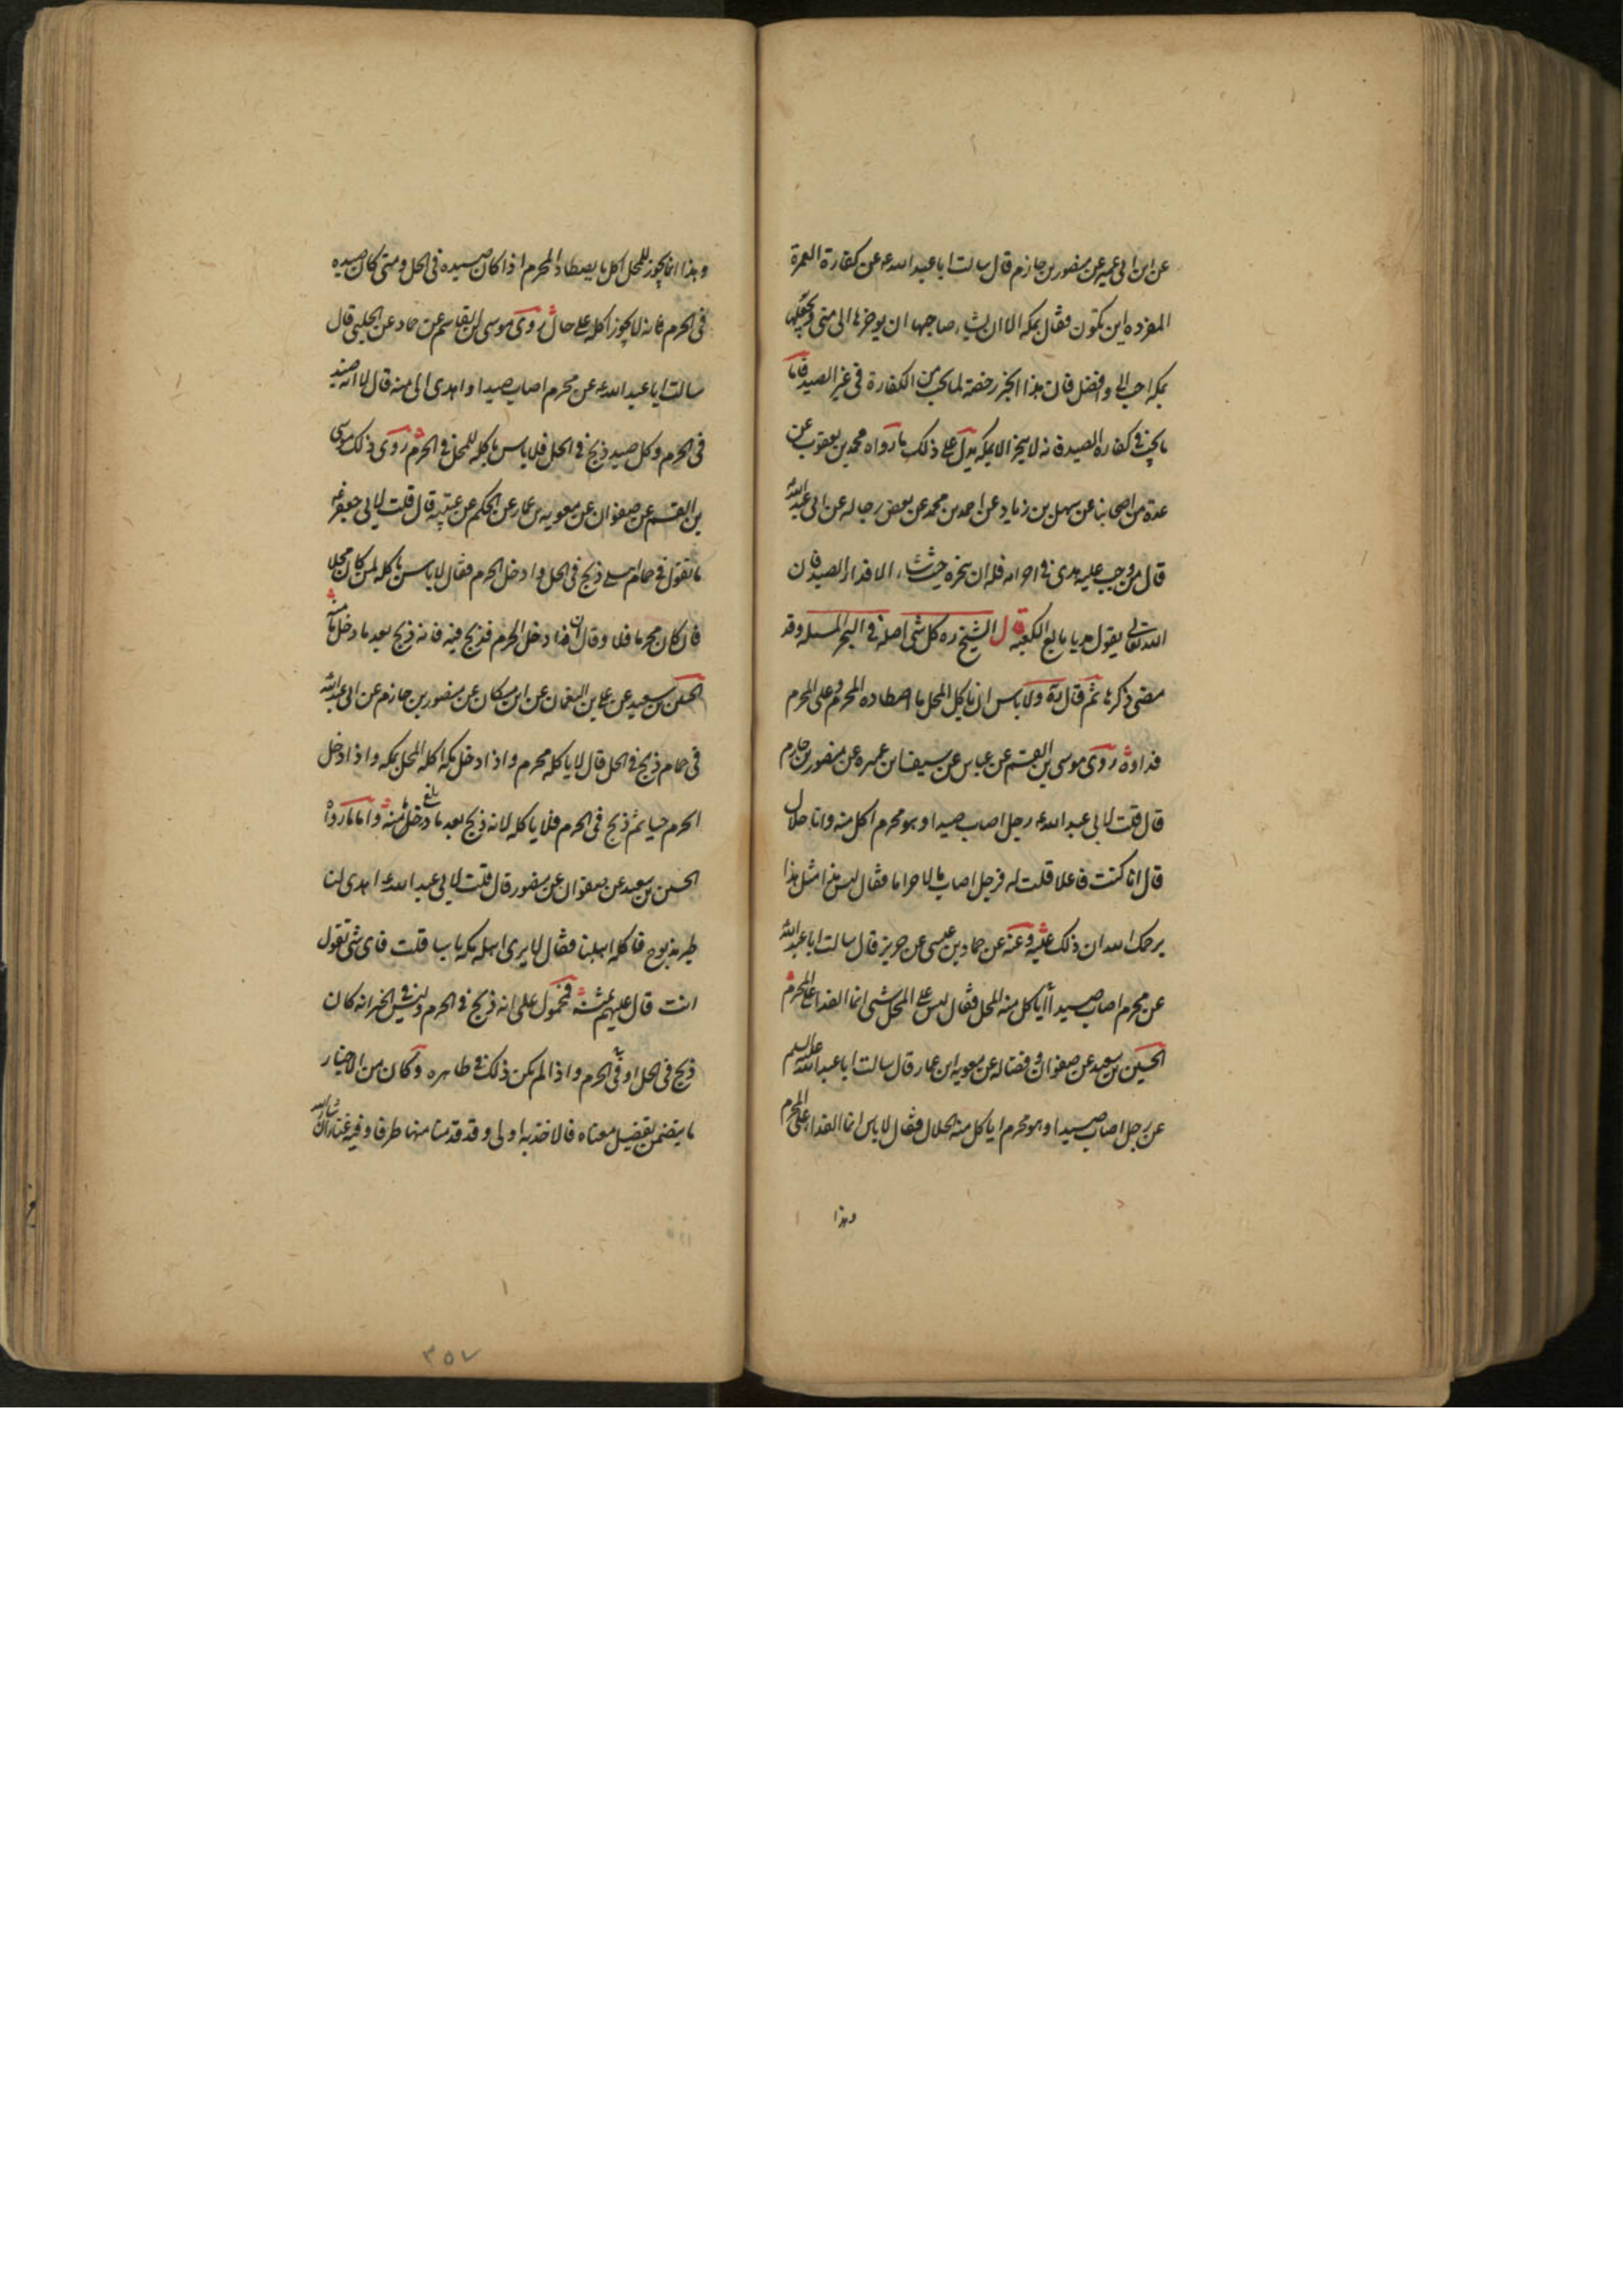 عن ابن ابی عمیر عن منصور بن حازم قال سالت ابا عبد الله ع عن کفارة العمرة
المفرده این تکون فقال بمکه الا ان یشاء صاحبها ان یوخرها الی منی ویجعلها
بمکه احب الی وافضل فان هذا الخبر رخصة لما یجب من الکفارة فی غیر الصید فاما
ما یجب فی کفاره الصید فانه لا ینحر الا بمکه یدل علی ذلک ما رواه محمد بن یعقوب عن
عدة من اصحابنا عن سهل بن زیاد عن احمد بن محمد عن بعض رجاله عن ابی عبد الله
قال من وجب علیه هدی فی احرامه فله ان ینحره حیث شاء الا فداء الصید فان
الله تعالی یقول هدیا بالغ الکعبه قال الشیخ ره کل شی اصله فی البحر المسله وقد
مضی ذکرها ثم قال ره ولا باس ان یاکل المحل ما اصطاده المحرم وعلی المحرم
فداوه روی موسی بن القسم عن عباس عن سیف بن عمیره عن منصور بن حازم
قال قلت لابی عبد الله ع رجل اصاب صیدا وهو محرم اکل منه وانا حلال
قال انا کنت فاعلا قلت له فرجل اصاب مالا حراما فقال لیس هذا مثل هذا
یرحمک الله ان ذلک علیه وعنه عن حماد بن عیسی عن حریز قال سالت ابا عبد الله
عن محرم اصاب صیدا أیاکل منه المحل فقال لیس علی المحل شی انما الفداء علی المحرم
الحسین بن سعید عن صفوان وفضاله عن معویه ابن عمار قال سالت ابا عبد الله علیه السلم
عن رجل اصاب صیدا وهو محرم ایاکل منه الحلال فقال لا باس انما الفداء علی المحرم
وهذا
وهذا انما یجوز للمحل اکل ما یصطاد المحرم اذا کان صیده فی الحل ومتی کان صیده
فی الحرم فانه لا یجوز اکله علی حال روی موسی ابن القاسم عن حماد عن الحلبی قال
سالت ابا عبد الله ع عن محرم اصاب صیدا واهدی الی منه قال لا انه صید
فی الحرم وکل صید ذبح فی الحل فلا باس باکله للمحل فی الحرم روی ذلک موسی
بن القسم عن صفوان عن معویه بن عمار عن الحکم عن عتیبه قال قلت لابی جعفر ع
ما تقول فی حمام اهلی ذبح فی الحل وادخل الحرم فقال لا باس باکله لمن کان محلا
فان کان محرما فلا وقال ان ادخل الحرم فذبح فیه فانه ذبح بعد ما دخل مأمنه
الحسین بن سعید عن علی بن النعمان عن ابن مسکان عن منصور بن حازم عن ابی عبد الله
فی حمام ذبح فی الحل قال لا یاکله محرم واذا ادخل مکه اکله المحل بمکه واذا ادخل
الحرم حیا ثم ذبح فی الحرم فلا یاکله لانه ذبح بعد ما دخل مأمنه واما ما رواه
الحسین بن سعید عن صفوان عن منصور قال قلت لابی عبد الله ع اهدی لنا
طیر مذبوح فاکله اهلنا فقال لا یری اهل مکه باسا قلت فای شی تقول
انت قال علیهم ثمنه فمحمول علی انه ذبح فی الحرم ولیس فی الخبر انه کان
ذبح فی الحل او فی الحرم واذا لم یکن ذلک فی ظاهره وکان من الاخبار
ما یتضمن تفصیل معناه فالاخذ به اولی وقد قدمنا منها طرفا وفیه غنا ان شاء الله
۳۵۷